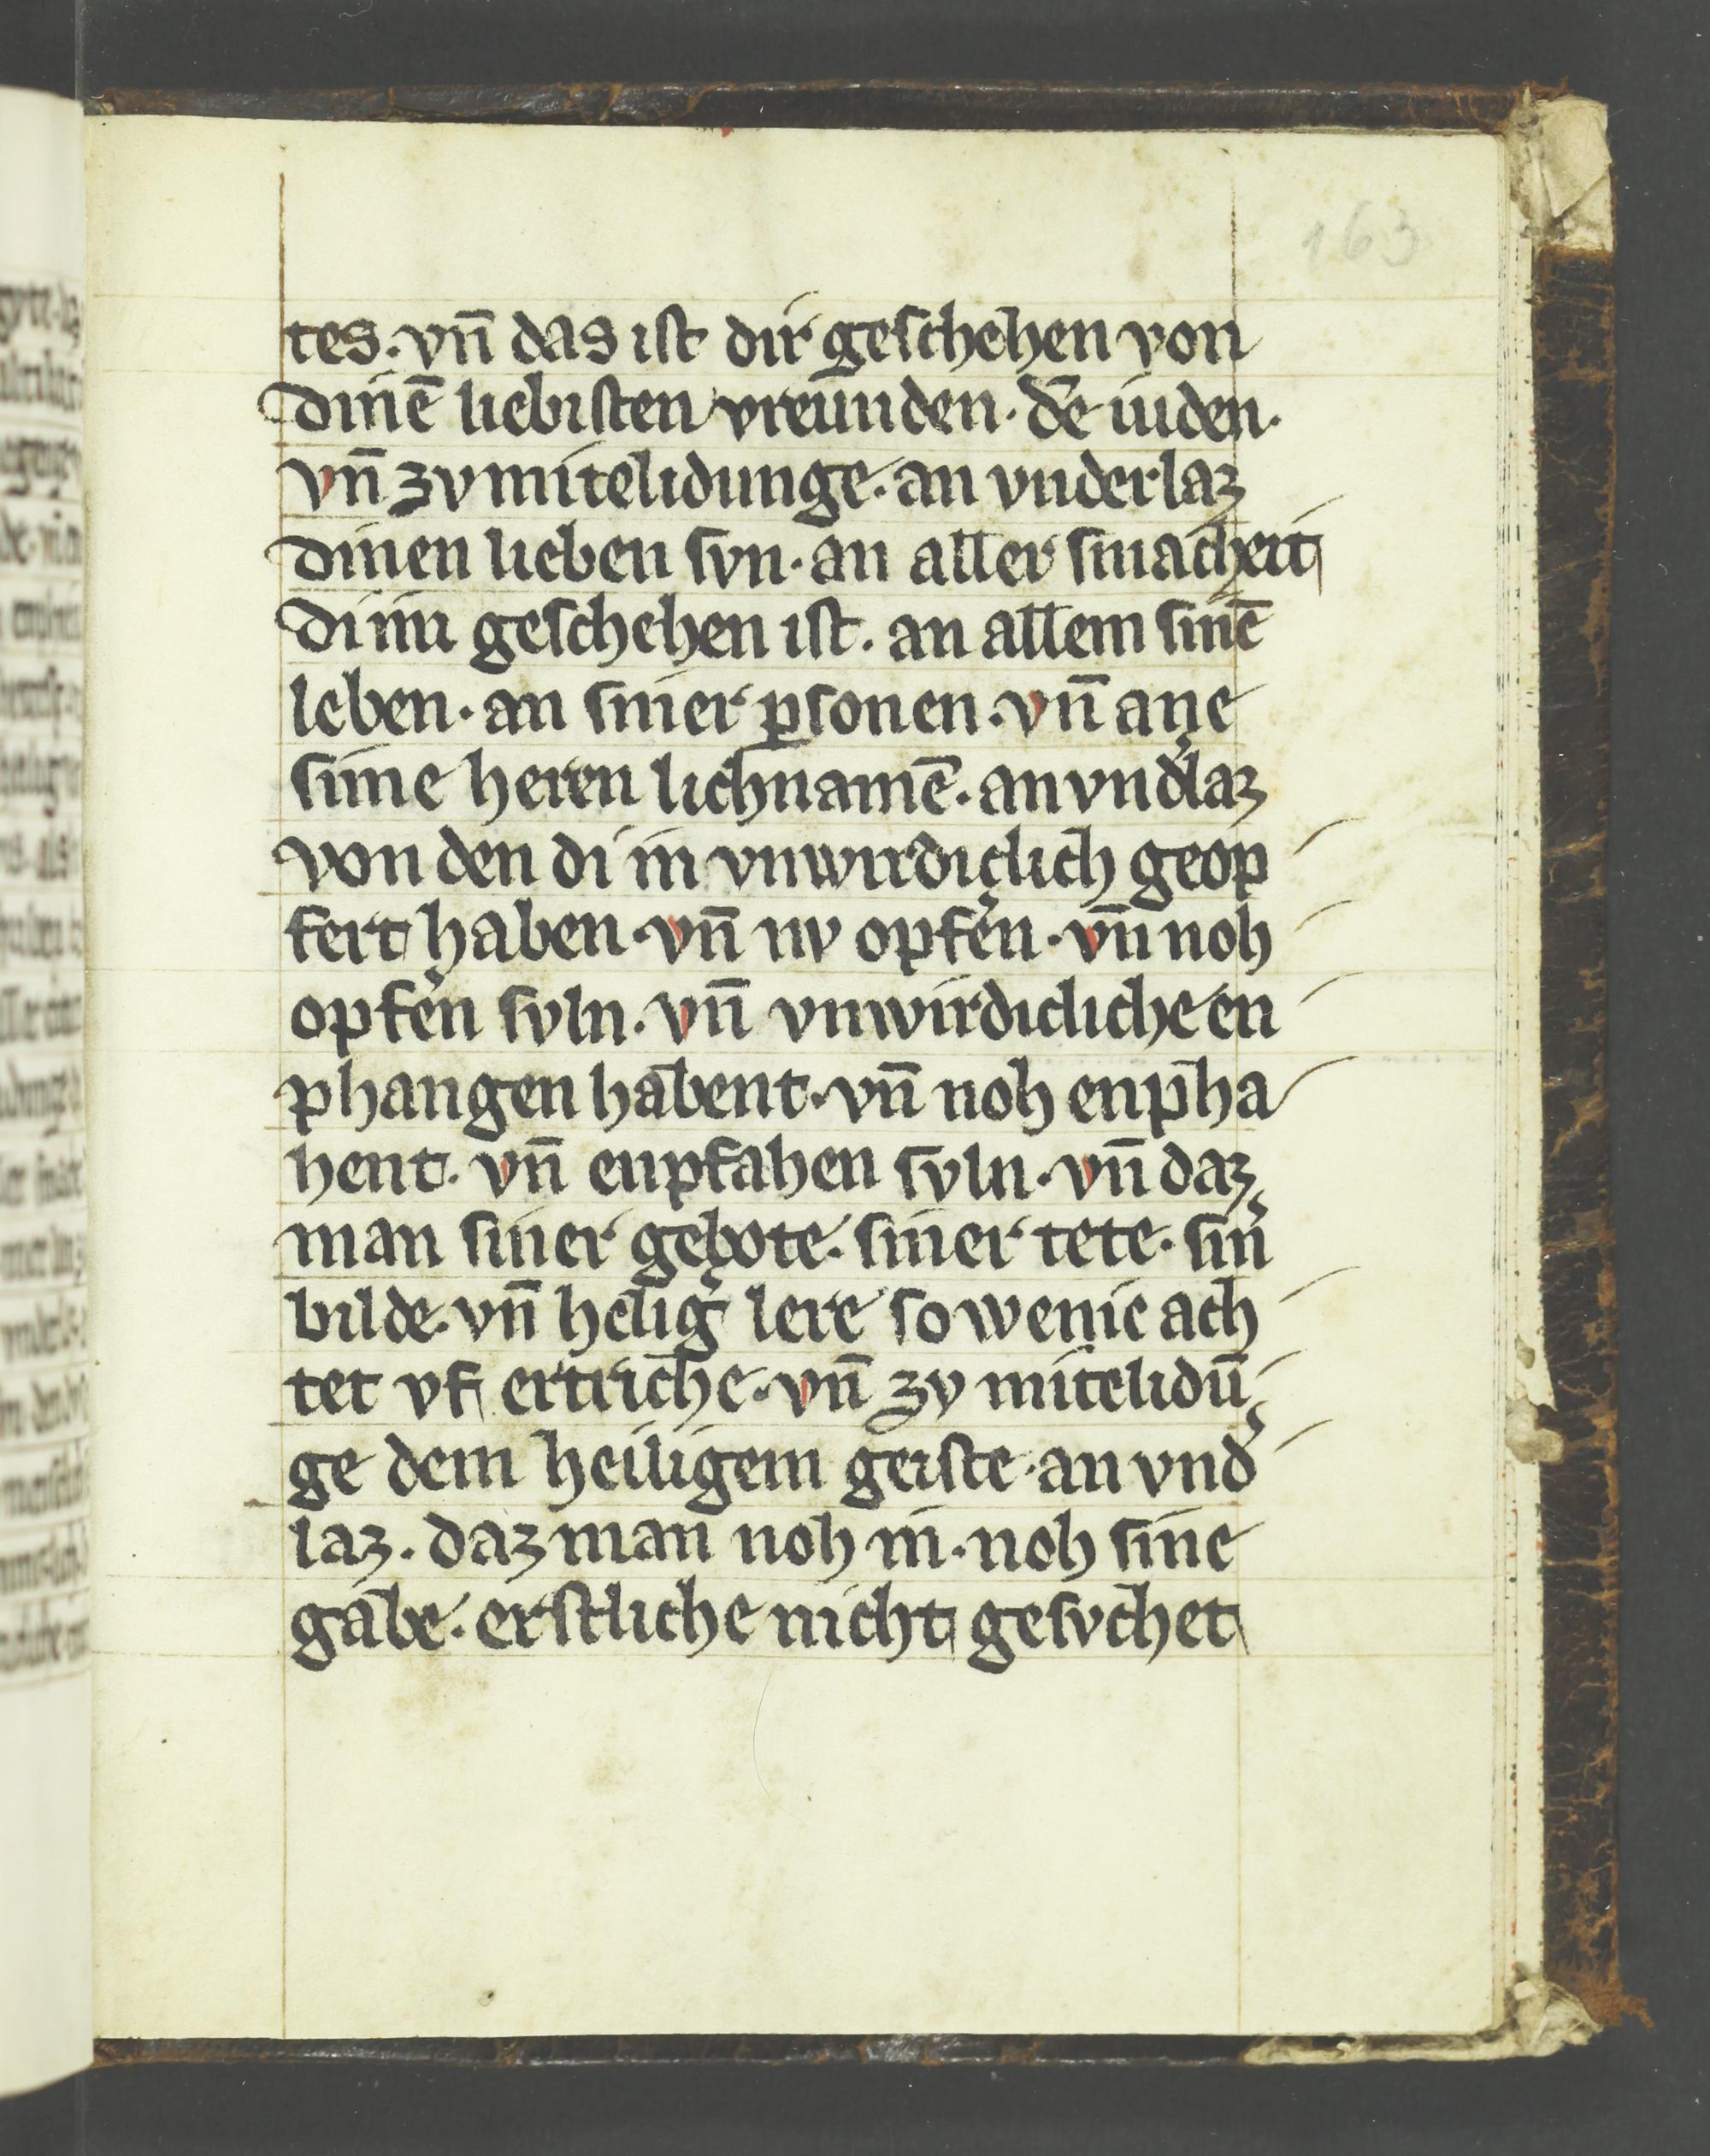 163
tes. vn̄ das ist dir geschehen von
dinē liebisten vreunden. dē iuden.
vn̄ zv mitelidunge. an vnderlaz
dinen lieben svn. an aller smacheit
di im geschehen ist. an allem sinē
leben. an siner ꝑsonen. vn̄ ane
sime heren lichnamē. an vnd͛laz
von den di in vnwirdiclich geop
fert haben. vn̄ nv opfe͛n. vn̄ noh
opfe͛n svln. vn̄ vnwirdicliche en
phangen habent. vn̄ noh enpha
hent. vn̄ enpfahen svln. vn̄ daz
man siner gebote. siner tete. sin͛
bilde. vn̄ heilig͛ lere so wenic ach
tet vf ertriche. vn̄ zv mitelidū
ge dem heiligem geiste. an vnd͛
laz. daz man noh in. noh sine
gabe. erstliche nicht gesvchet